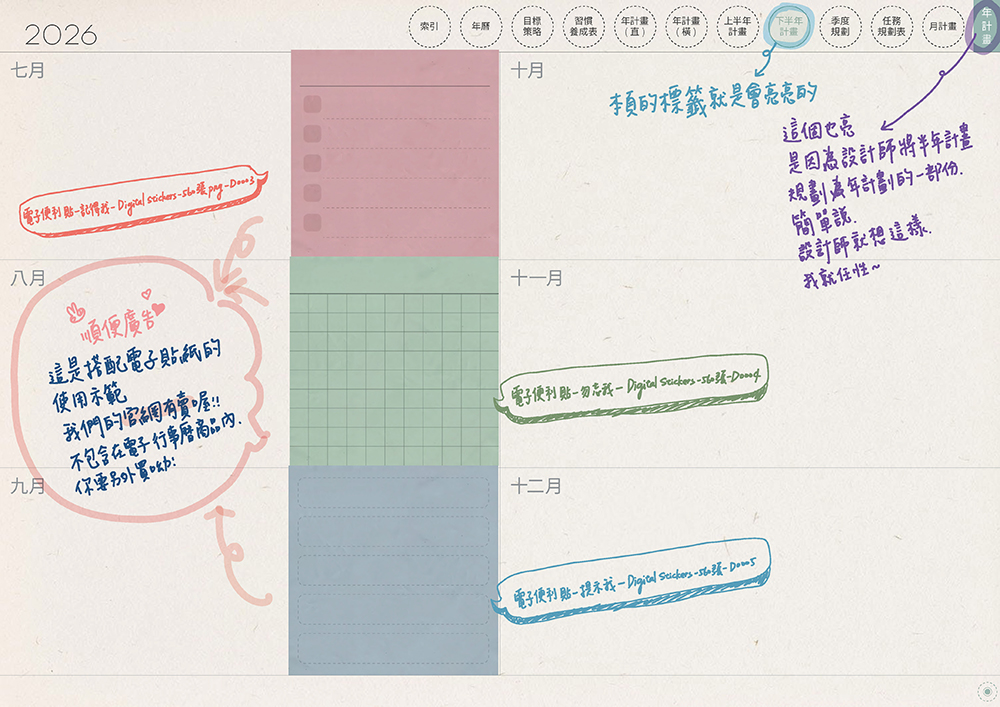 2026
索引
年曆
目標
策略
習慣
養成表
年計畫
(直)
年計畫
(橫)
上半年
計畫
下半年
計畫
季度
規劃
任務
規劃表
月計畫
年計畫
七月
十月
本頁的標籤就是會亮亮的
這個也亮
是因為設計師將半年計畫
規劃為年計劃的一部份.
簡單說.
設計師就想這樣.
我就任性~
電子便利貼-記得我-Digital Stickers-560張png-D0003
八月
十一月
順便廣告
這是搭配電子貼紙的
使用示範
我們的官網有賣喔!!
不包含在電子行事曆商品內.
你要另外買呦:
電子便利貼-勿忘我-Digital Stickers-560張-D0004
九月
十二月
電子便利貼-提示我-Digital Stickers-560張-D0005